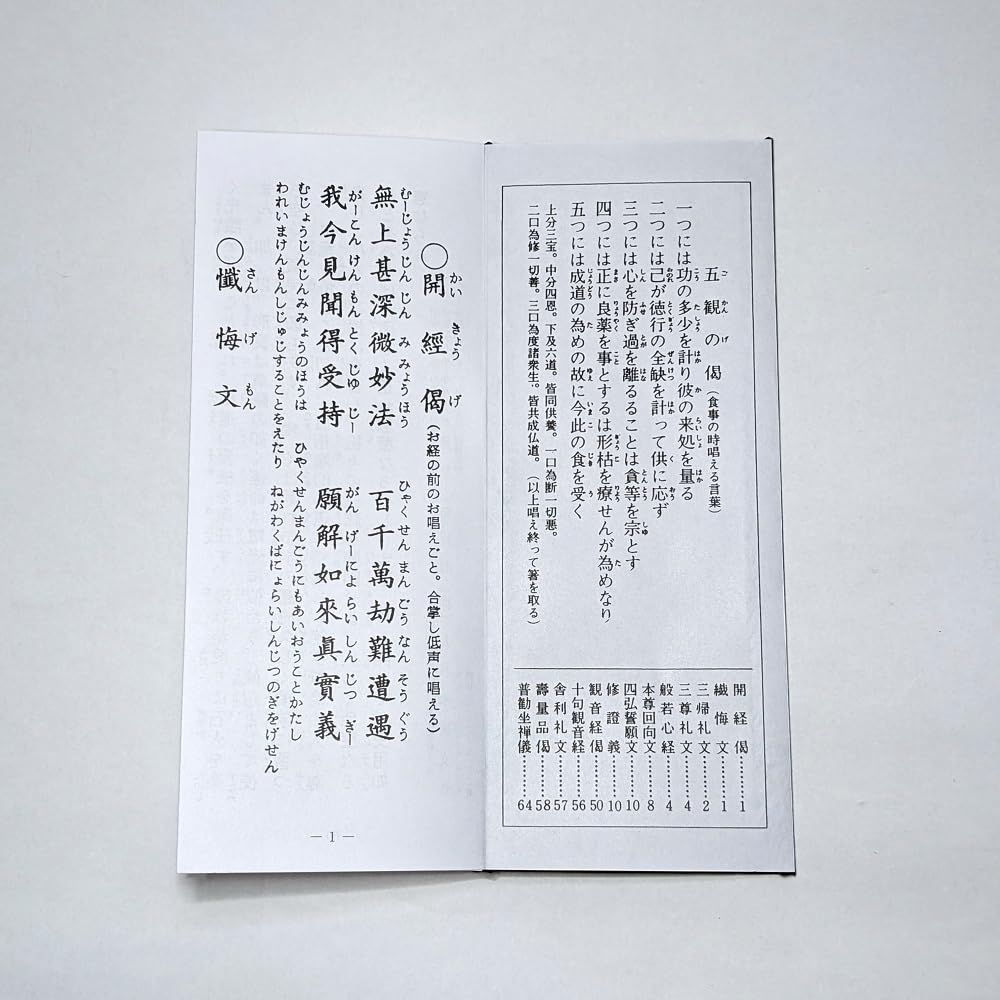 五観の偈(食事の時唱える言葉)
一つには功の多少を計り彼の来処を量る
二つには己が徳行の全缺を計って供に応ず
三つには心を防ぎ過を離るることは貪等を宗とす
四つには正に良薬を事とするは形枯を療ぜんが為めなり
五つには成道の為めの故に今此の食を受く
上分三宝。中分四恩。下及六道。皆同供養。一口為断一切悪。
二口為修一切善。三口為度諸衆生。皆共成仏道。(以上唱え終って箸を取る)
開経偈………1
懺悔文………1
三帰礼文………2
三尊礼文………4
般若心経………4
本尊回向文………8
四弘誓願文………10
修證義………10
観音経偈………50
十句観音経………56
舎利礼文………57
壽量品偈………58
普勧坐禅儀………64
○開經偈(お経の前のお唱えごと。合掌し低声に唱える)
かいきょうげ
むーじょうじんじんみみょうほう ひゃくせんまんごうなんそうぐう
無上甚深微妙法 百千萬劫難遭遇
がーこんけんもんとくじゅじー がんげーによらいしんじつぎー
我今見聞得受持 願解如來眞實義
むじょうじんじんみみょうのほうは ひやくせんまんごうにもあいおうことかたし
われいまけんもんしじゅじすることをえたり ねがわくばにょらいしんじつのぎをげせん
○懺悔文
さんげもん
─1─